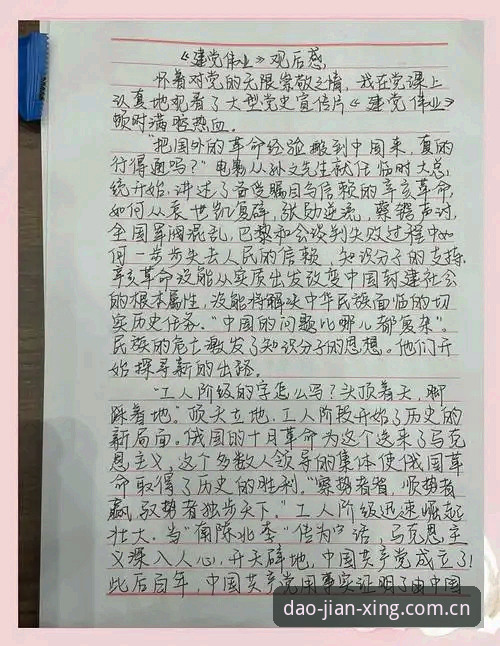 《建党伟业》观后感
怀着对党的无限崇敬之情，我在党课上
认真地观看了大型党史宣传片《建党伟业》
顿时满腔热血。
"把国外的革命经验搬到中国来，真的
行得通吗？"电影从孙文先生就任临时大总
统开始，讲述了备受瞩目与信赖的辛亥革命，
如何从袁世凯复辟，张勋逆流，蔡锷声讨，
全国军阀混乱，巴黎和会谈判失败过程中如
何一步步失去人民的信赖，知识分子的支持。
辛亥革命没能从实质出发改变中国封建社会
的根本属性，没能将解决中华民族面临的切
实历史任务。"中国的问题比哪儿都复杂"。
民族的危亡激发了知识分子的思想。他们开
始探寻新的出路。
"工人阶级的字怎么写？头顶着天，脚
踩着地。"顶天立地，工人阶段开始了历史的
新局面。俄国的十月革命为这个送来了马克
思主义，这个多数人领导的集体使俄国革
命取得了历史的胜利。"察势者智，顺势者
赢，驭势者独步天下。"工人阶级迅速崛起
壮大。当"南陈北李"传为话，马克思主
义深入人心，开天辟地，中国共产党成立了！
此后百年，中国共产党用事实证明了由中国
dao-jian-xing.com.cn